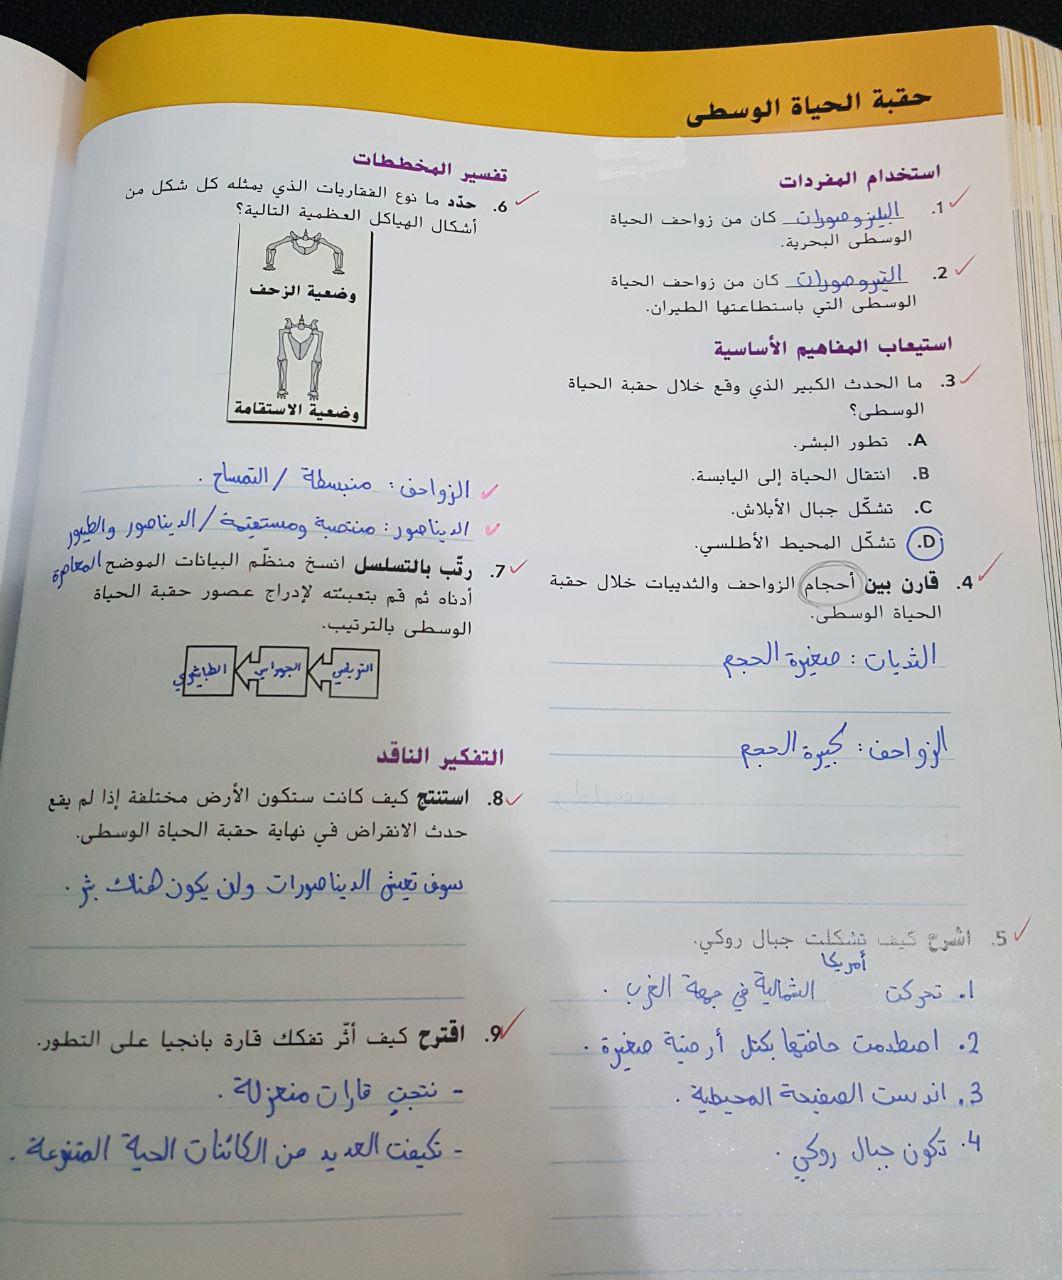 حقبة الحياة الوسطى
استخدام المفردات
1. البليزوصورات كان من زواحف الحياة
الوسطى البحرية.
2. التيروصورات كان من زواحف الحياة
الوسطى التي باستطاعتها الطيران.
استيعاب المفاهيم الأساسية
3. ما الحدث الكبير الذي وقع خلال حقبة الحياة
الوسطى؟
A. تطور البشر.
B. انتقال الحياة إلى اليابسة.
C. تشكّل جبال الأبلاش.
D. تشكّل المحيط الأطلسي.
4. قارن بين أحجام الزواحف والثدييات خلال حقبة
الحياة الوسطى.
الثديات : صغيرة الحجم
الزواحف : كبيرة الحجم
5. اشرح كيف تشكلت جبال روكي.
1. تحركت أمريكا الشمالية في جهة الغرب .
2. اصطدمت حافتها بكتل أرضية صغيرة .
3. اندست الصفيحة المحيطية .
4. تكون جبال روكي .
تفسير المخططات
6. حدّد ما نوع الفقاريات الذي يمثله كل شكل من
أشكال الهياكل العظمية التالية؟
وضعية الزحف
وضعية الاستقامة
الزواحف : منبسطة / التمساح .
الديناصور : منتصبة ومستقيمة / الديناصور والطيور
المعاصرة
7. رتّب بالتسلسل انسخ منظّم البيانات الموضح
أدناه ثم قم بتعبئته لإدراج عصور حقبة الحياة
الوسطى بالترتيب.
الترياسي الجوراسي الطباشيري
التفكير الناقد
8. استنتج كيف كانت ستكون الأرض مختلفة إذا لم يقع
حدث الانقراض في نهاية حقبة الحياة الوسطى.
سوف تعيش الديناصورات ولن يكون هناك بشر .
9. اقترح كيف أثّر تفكك قارة بانجيا على التطور.
- نتجت قارات منعزلة .
- تكيفت العديد من الكائنات الحية المتنوعة .